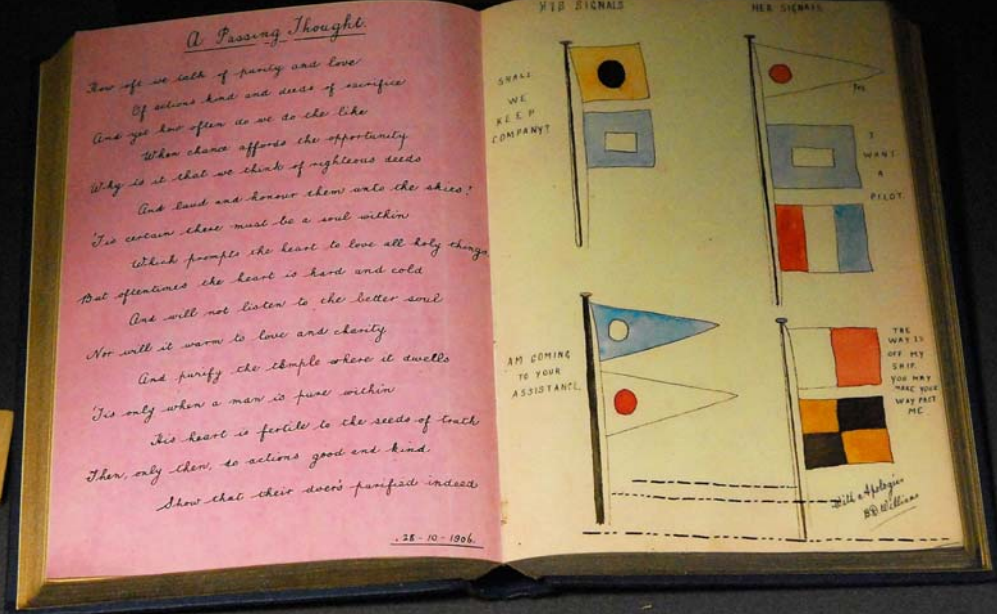 A Passing Thought.
How oft we talk of purity and love
Of actions kind and deeds of sacrifice
And yet how often do we do the like
When chance affords the opportunity
Why is it that we think of righteous deeds
And laud and honour them unto the skies?
'Tis certain there must be a soul within
Which prompts the heart to love all holy things,
But oftentimes the heart is hard and cold
And will not listen to the better soul
Nor will it warm to love and charity
And purify the temple where it dwells
'Tis only when a man is pure within
His heart is fertile to the seeds of truth
Then, only then, do actions good and kind
Show that their doer's purified indeed
28-10-1906.
HIS SIGNALS
SHALL
WE
KEEP
COMPANY?
AM COMING
TO YOUR
ASSISTANCE.
HER SIGNALS
I
WANT
A
PILOT.
THE
WAY IS
OFF MY
SHIP.
YOU MAY
MAKE YOUR
WAY PAST
ME.
With Apologies
Williams